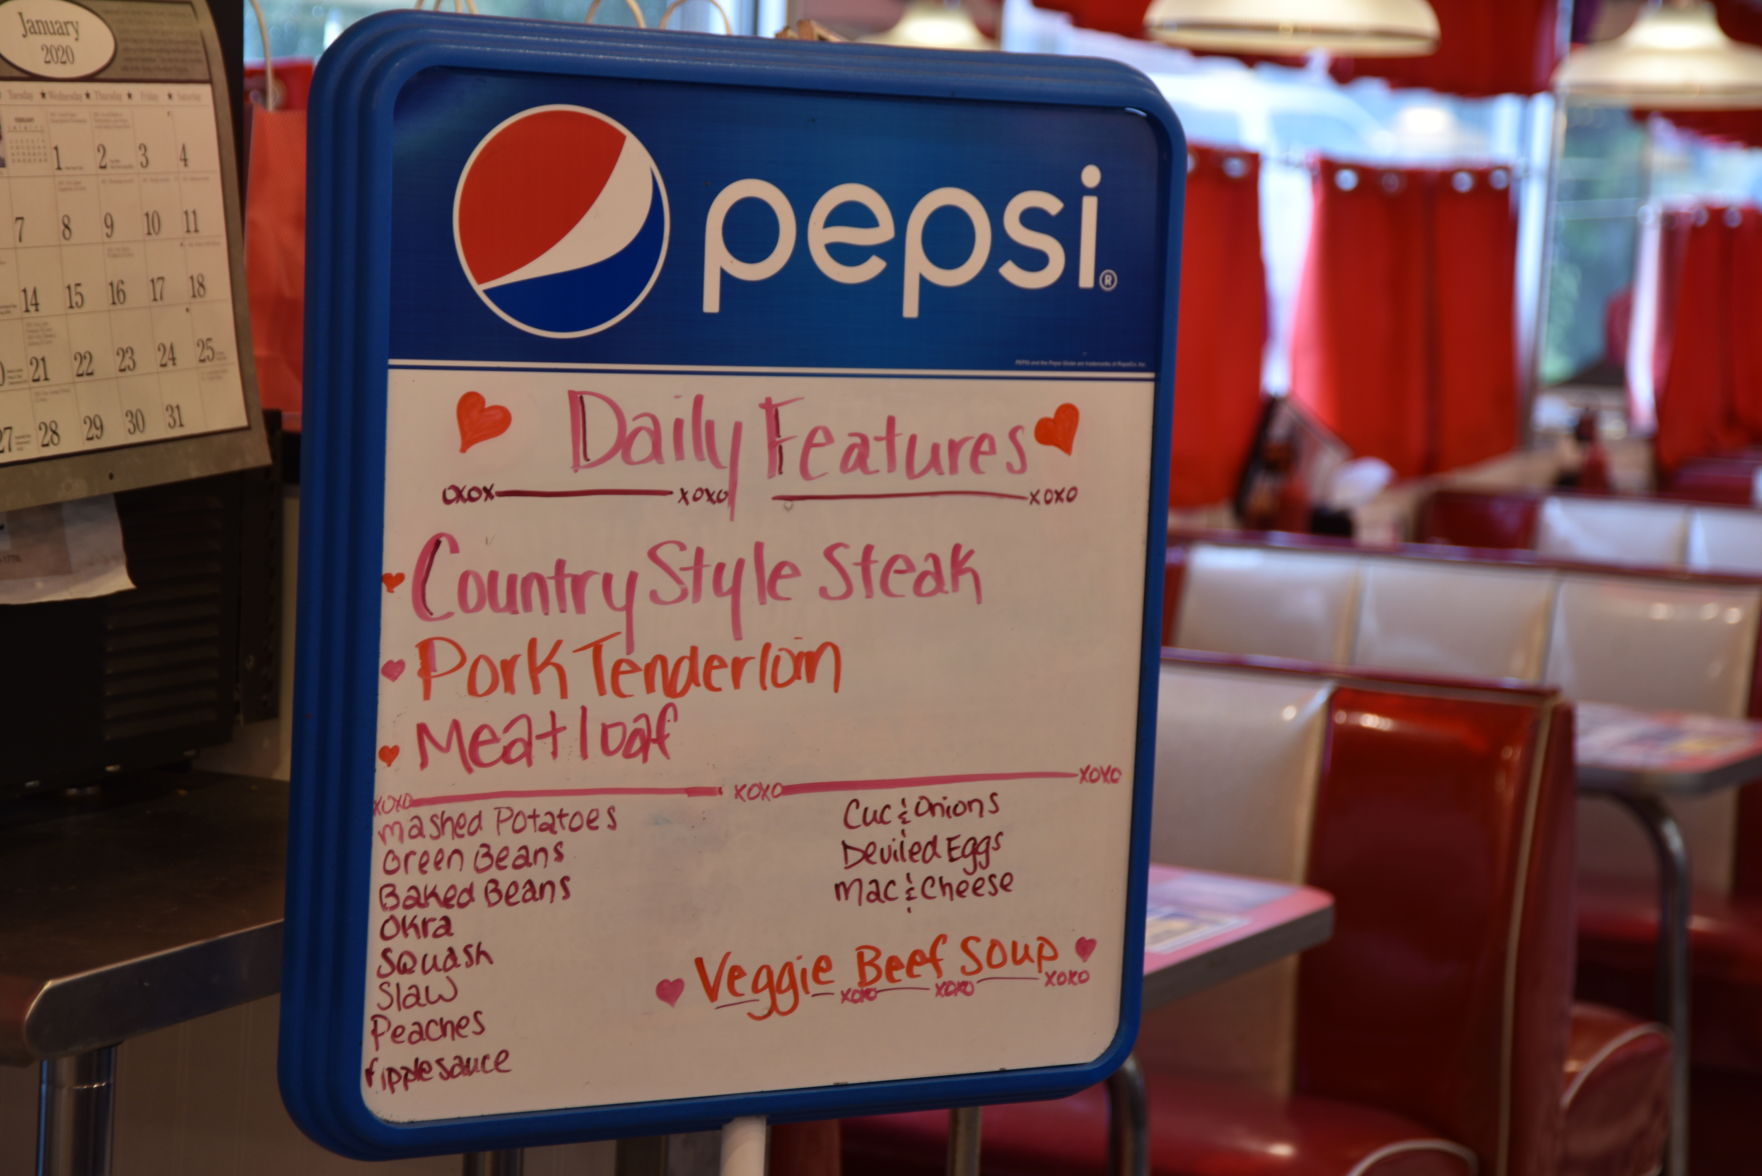 January
2020
Tuesday ★ Wednesday ★ Thursday ★ Friday ★ Saturday
1 2 3 4
7 8 9 10 11
14 15 16 17 18
21 22 23 24 25
27 28 29 30 31
pepsi®
Daily Features
OXOX XOXO XOXO
Country Style Steak
Pork Tenderloin
Meatloaf
XOXO XOXO XOXO
Mashed Potatoes
Green Beans
Baked Beans
Okra
Squash
Slaw
Peaches
Applesauce
Cuc & Onions
Deviled Eggs
Mac & Cheese
Veggie Beef Soup
XOXO XOXO XOXO